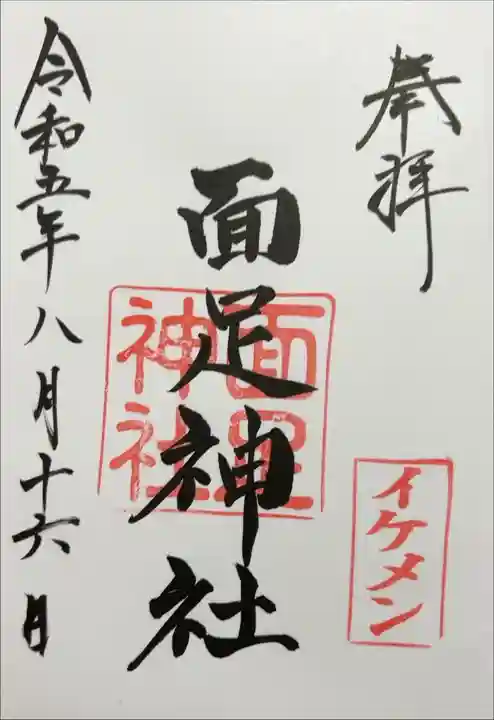 奉拝
イケメン
面足神社
面足神社
令和五年八月十六日